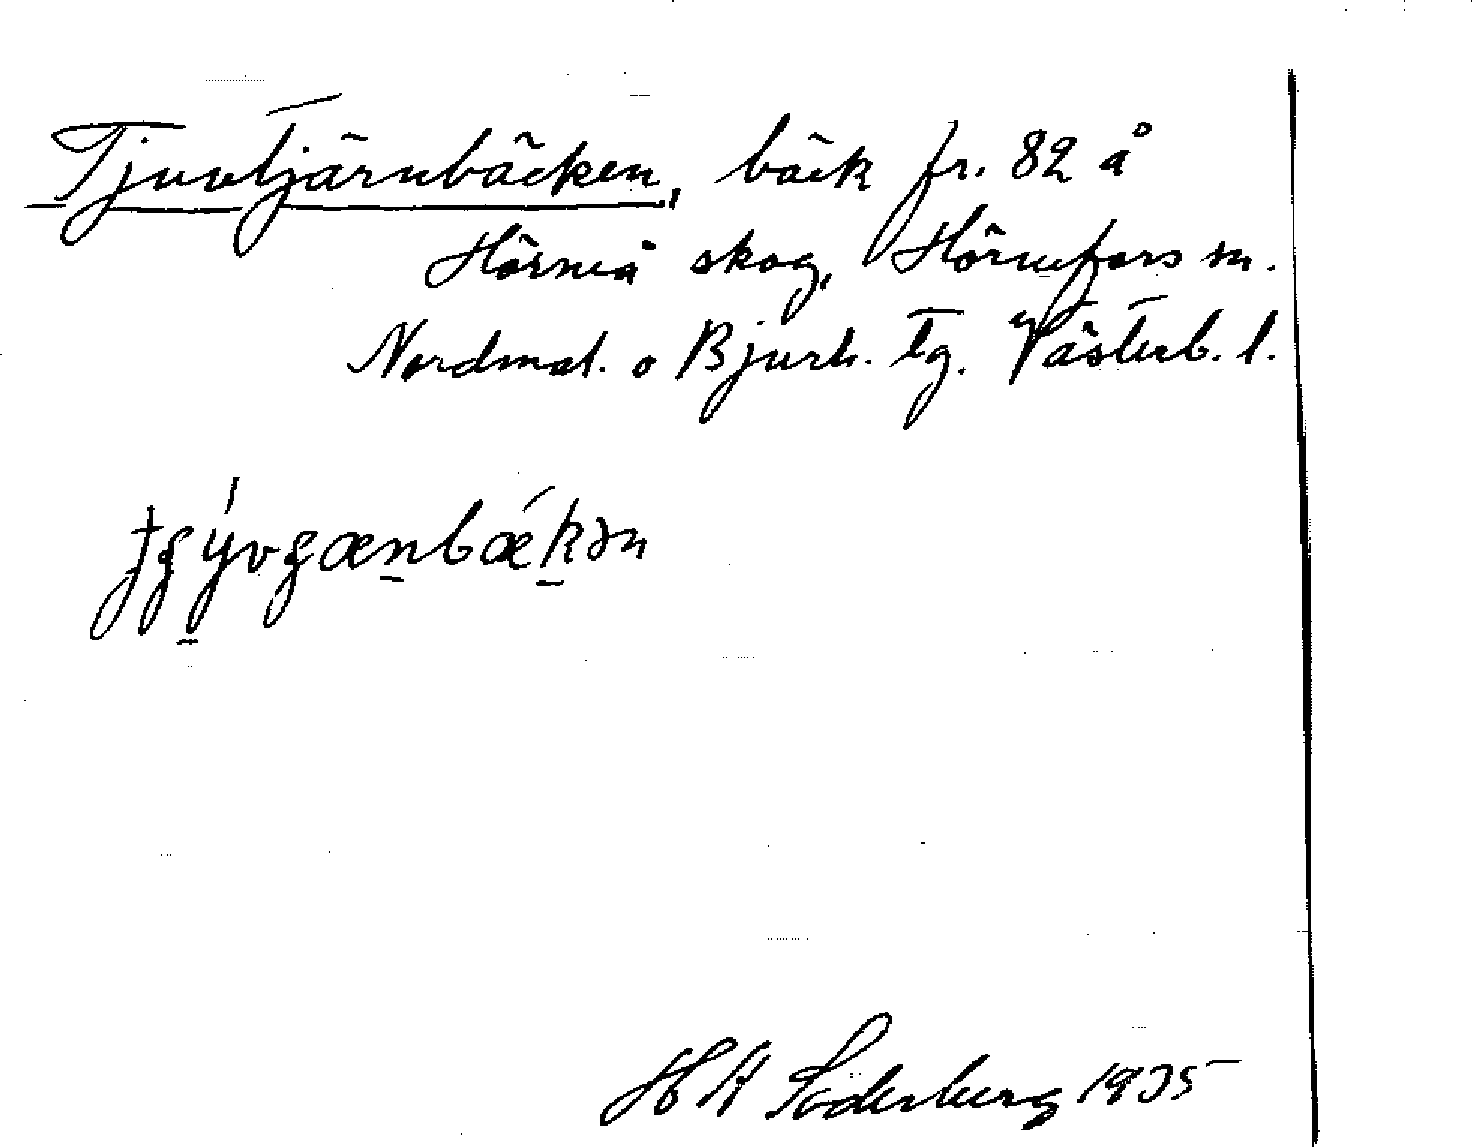 Tjuvtjärnbäcken, bäck fr. 82 å
Hörneå skog, Hörnefors sn.
Nordmal. o Bjurh. tg. Västerb. l.
H Söderberg 1935